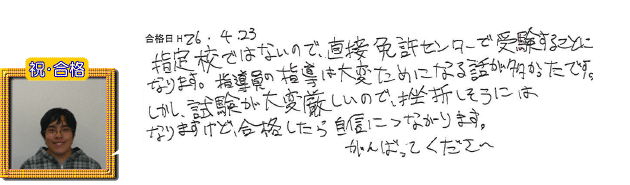 合格日 H26.4.23
祝・合格
指定校ではないので、直接免許センターで受験することに
なります。指導員の指導は大変ためになる話が多かったです。
しかし、試験が大変厳しいので、挫折しそうには
なりますけど、合格したら自信につながります。
がんばってくださ〜